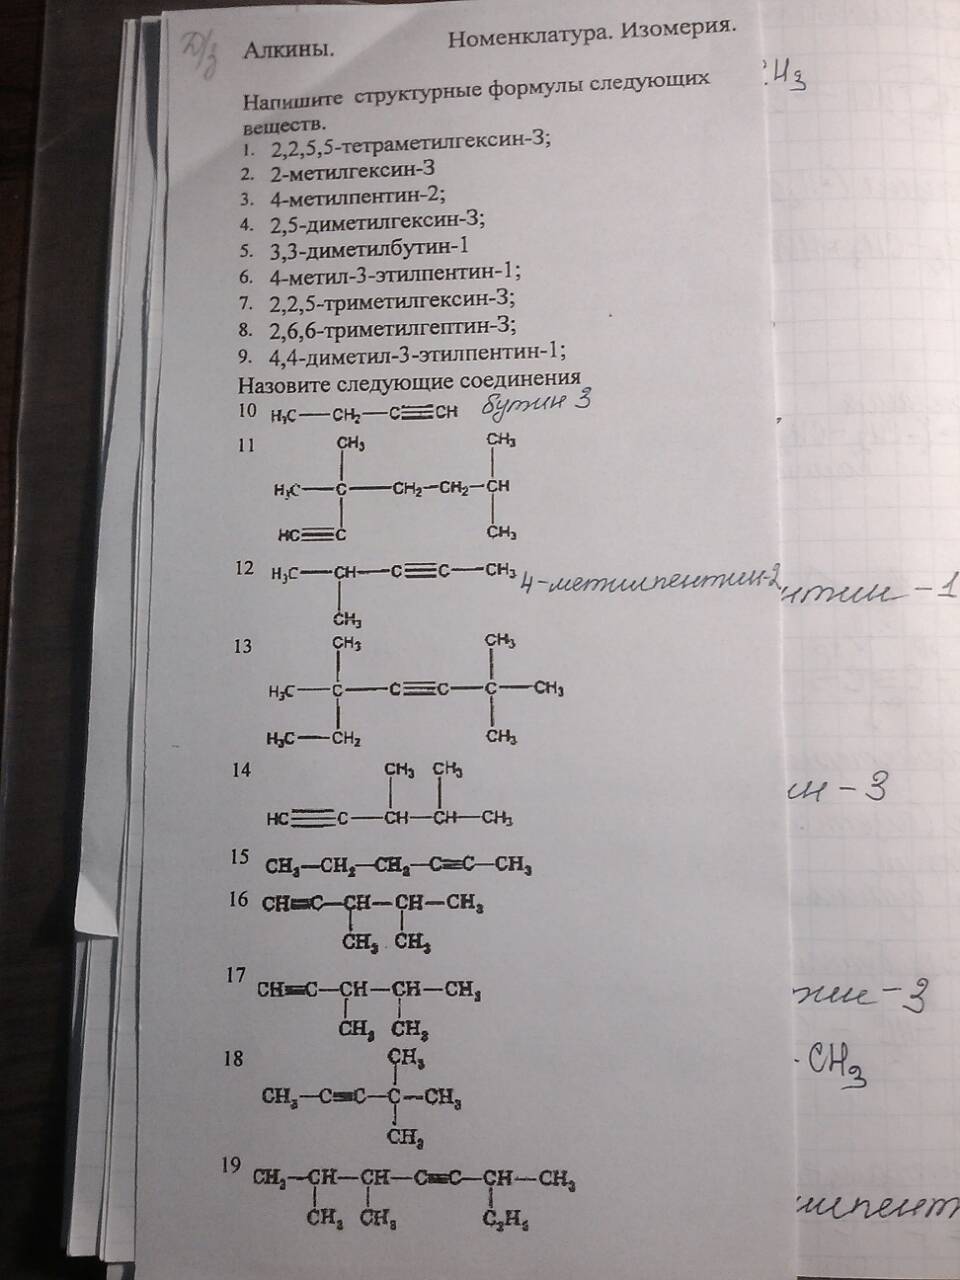 Д/з
Алкины. Номенклатура. Изомерия.
CH₃
Напишите структурные формулы следующих
веществ.
1. 2,2,5,5-тетраметилгексин-3;
2. 2-метилгексин-3
3. 4-метилпентин-2;
4. 2,5-диметилгексин-3;
5. 3,3-диметилбутин-1
6. 4-метил-3-этилпентин-1;
7. 2,2,5-триметилгексин-3;
8. 2,6,6-триметилгептин-3;
9. 4,4-диметил-3-этилпентин-1;
Назовите следующие соединения
10 H₃C—CH₂—C≡CH бутин 3
11 CH₃ CH₃
H₃C—C—CH₂—CH₂—CH
HC≡C CH₃
12 H₃C—CH—C≡C—CH₃ 4-метилпентин-2
нтин-1
CH₃
13 CH₃ CH₃
H₃C—C—C≡C—C—CH₃
H₃C—CH₂ CH₃
14 CH₃ CH₃
ин-3
HC≡C—CH—CH—CH₃
15 CH₃—CH₂—CH₂—C≡C—CH₃
16 CH≡C—CH—CH—CH₃
CH₃ CH₃
17 CH≡C—CH—CH—CH₃
тин-3
CH₃ CH₃
18 CH₃
-CH₃
CH₃—C≡C—C—CH₃
CH₃
19 CH₃—CH—CH—C≡C—CH—CH₃
CH₃ CH₃ C₂H₅
илпент